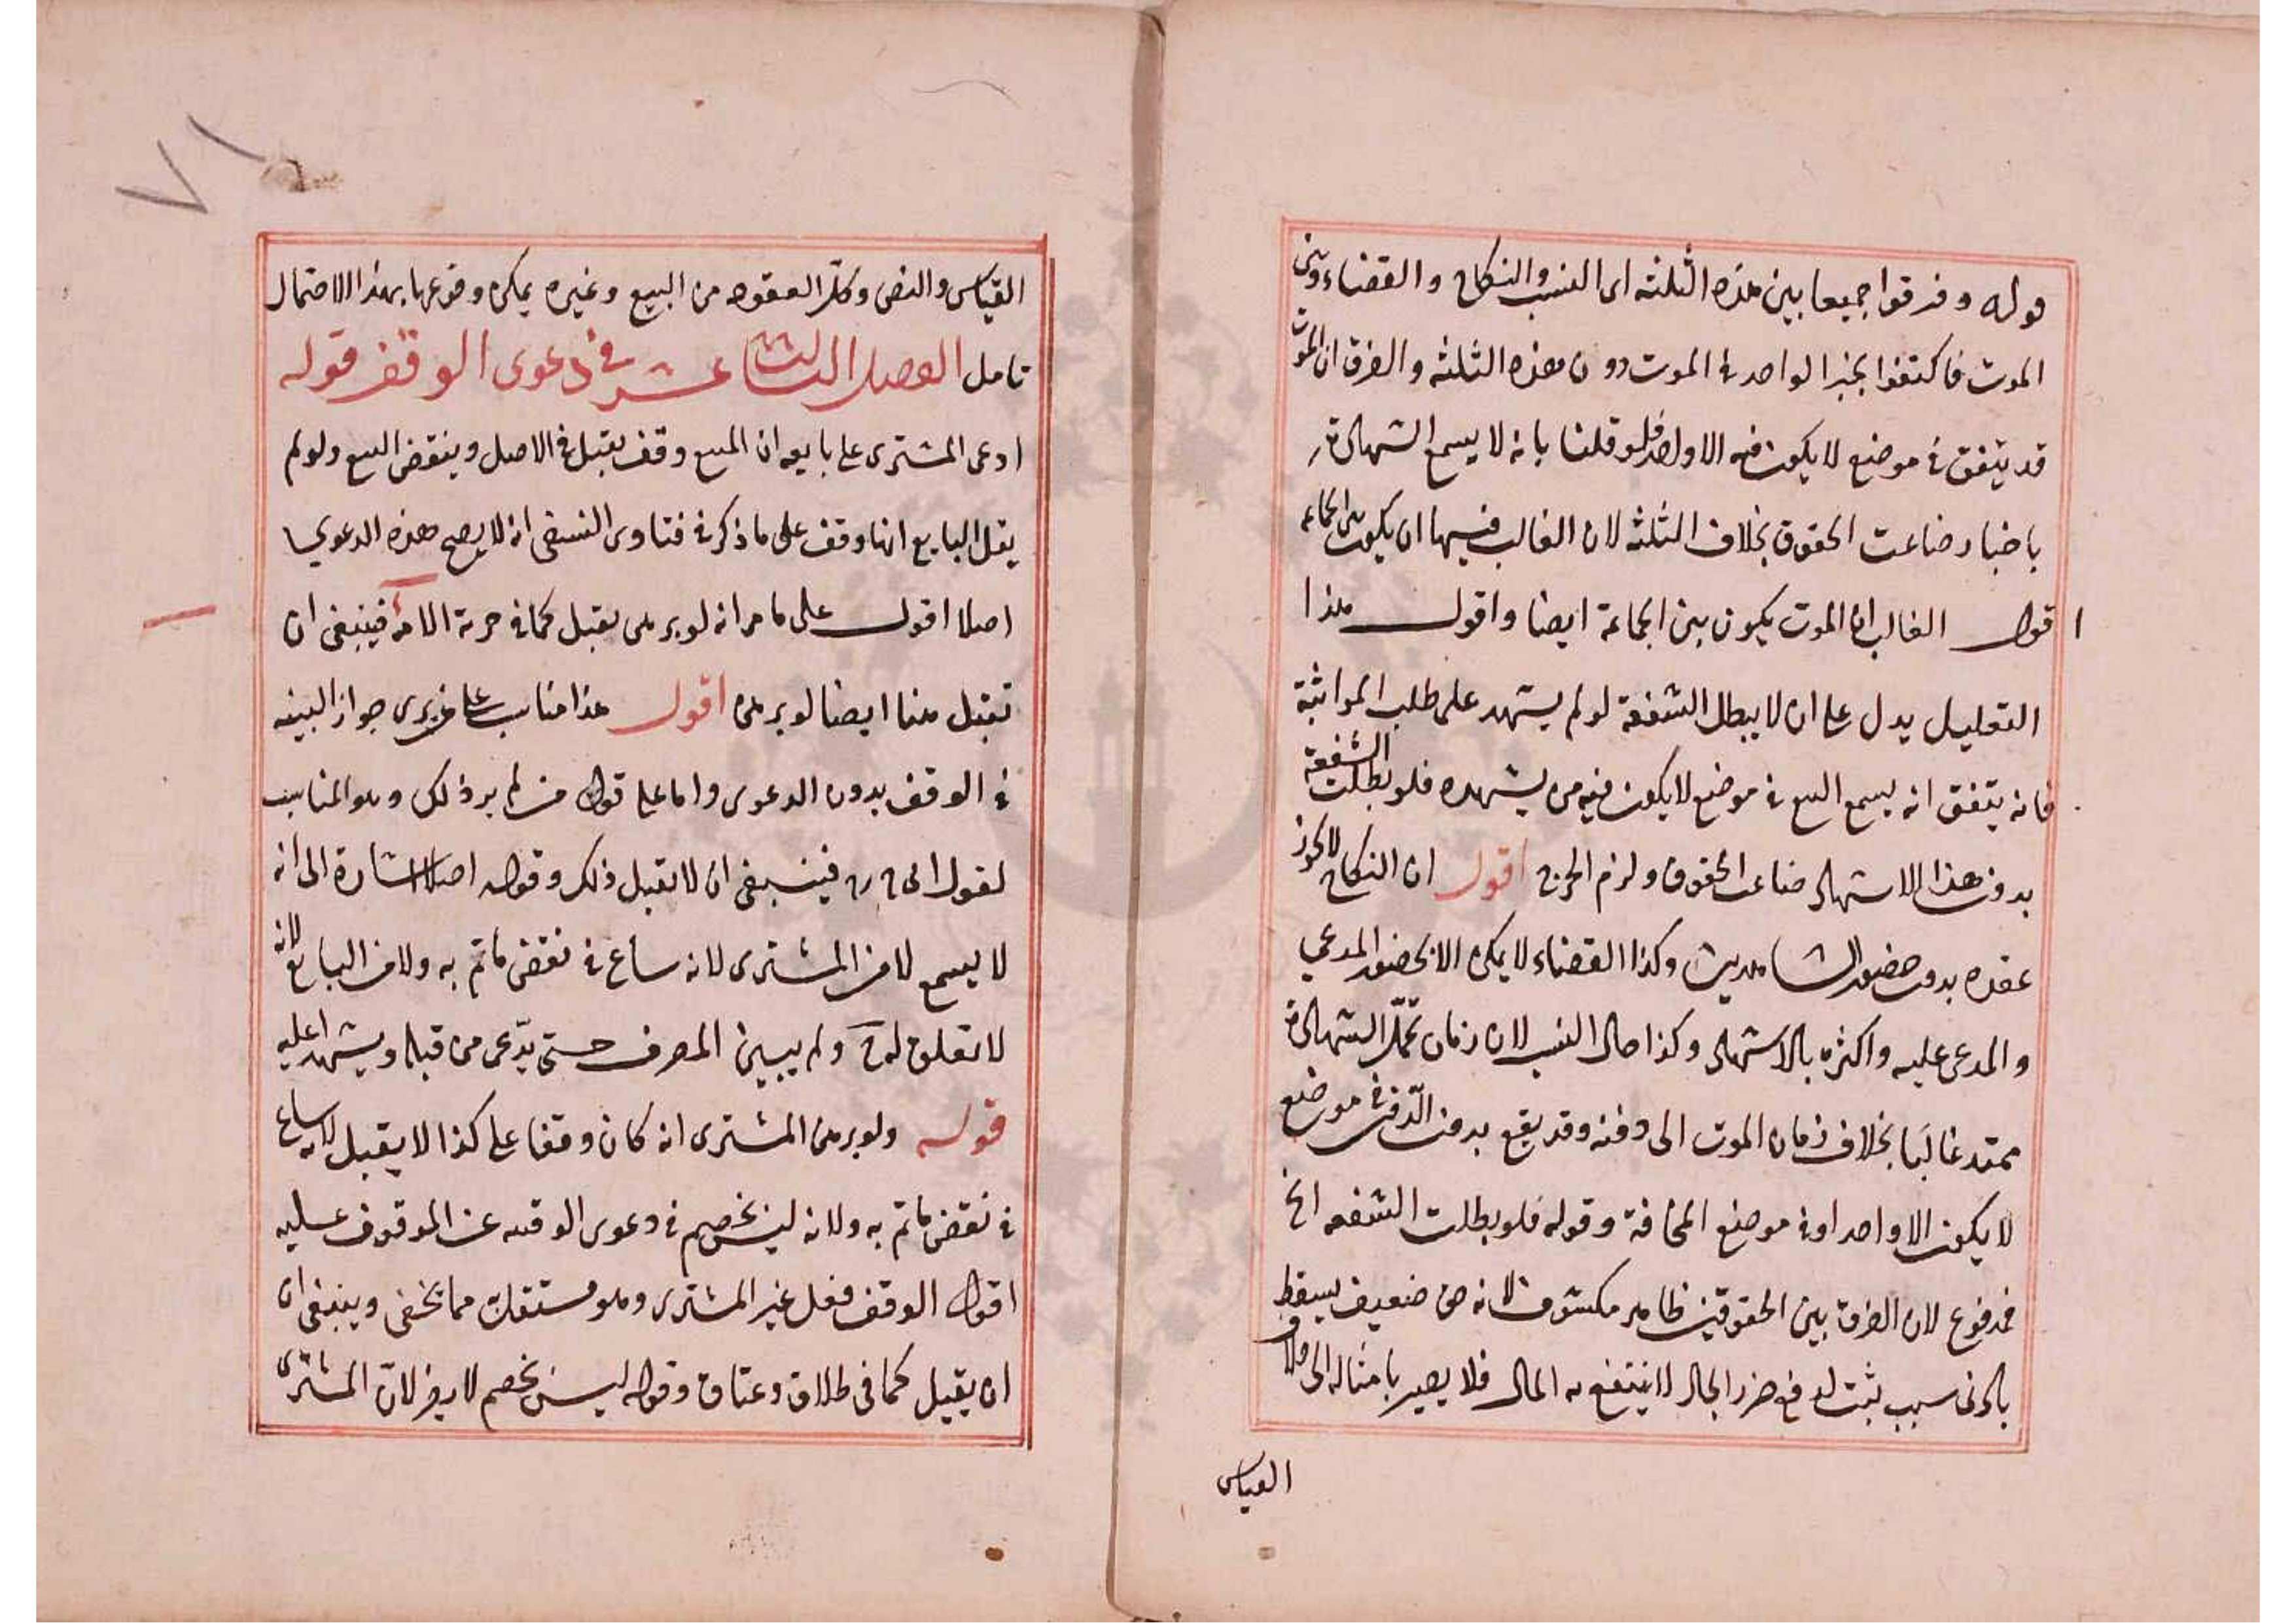 قوله وفرقوا جميعا بين هذه الثلثه اى النسب والنكاح والقضاء وبين
الموت فاكتفوا بخبر الواحد فى الموت دون هذه الثلثه والفرق ان الموت
قد يتفق فى موضع لا يكون فيه الا واحد فلو قلنا بانه لا يسمع الشهادة
باخباره ضاعت الحقوق بخلاف الثلثه لان الغالب فيها ان يكون بين الجماعه
اقول الغالب ان الموت يكون بين الجماعة ايضا واقول هذا
التعليل يدل على ان لا يبطل الشفعة لو لم يشهد على طلب المواثبة
فانه يتفق انه يسمع البيع فى موضع لا يكون فيه من يشهده فلو بطلت الشفعة
بدون هذا الاستشهاد ضاعت الحقوق ولزم الحرج اقول ان النكاح لا يجوز
عقده بدون حضور الشاهدين وكذا القضاء لا يمكن الا بحضور المدعي
والمدعى عليه واكثره بالاشتهاد وكذا حال النسب لان زمان تحمّل الشهادة
ممتد غالبا بخلاف زمان الموت الى دفنه وقد يقع بدون الدّفن فى موضع
لا يكون الا واحد او فى موضع المخافة وقوله فلو بطلت الشفعه الخ
فمدفوع لان الفرق بين الحقوقين ظاهر مكشوف لانه حق ضعيف يسقط
بادنى سبب يثبت لدفع ضرر الجار لا ينتفع به المال فلا يصير بامثاله الى خلاف
القياس
القياس والنص وكذا العقود من البيع وغيره يمكن وقوعها بهذا الاحتمال
تامل الفصل الثالث عشر فى دعوى الوقف قوله
ادعى المشترى على بايعه ان المبيع وقف يقبل فى الاصل وينقض البيع ولو لم
يقل البايع انها وقف على ما ذكر فى فتاوى النسفى انه لا يصح هذه الدعوي
اصلا اقول على ما مر انه لو برهن يقبل كما فى حرية الامة فينبغى ان
تقبل هنا ايضا لو برهن اقول هذا مناسب على من يرى جواز البينه
فى الوقف بدون الدعوى واما على قول من لم ير ذلك وهو المناسب
لقول ابى ح رح فينبغى ان لا يقبل ذلك وقوله اصلا اشارة الى انه
لا يسمع لا من المشترى لانه ساع فى نقض ما تم به ولا من البايع لانه
لا تعلق له ح ولم يبين المصرف حتى يدّعى من قبله ويشهدا عليه
قوله ولو برهن المشترى انه كان وقفا على كذا لا يقبل لانه ساع
فى نقض ما تم به ولانه ليس بخصم فى دعوى الوقف عن الموقوف عليه
اقول الوقف فعل غير المشترى وهو مستقل مما يخفى وينبغى ان
ان يقبل كما فى طلاق وعتاق وقوله ليس بخصم لا يضر لان المشترى
٧١